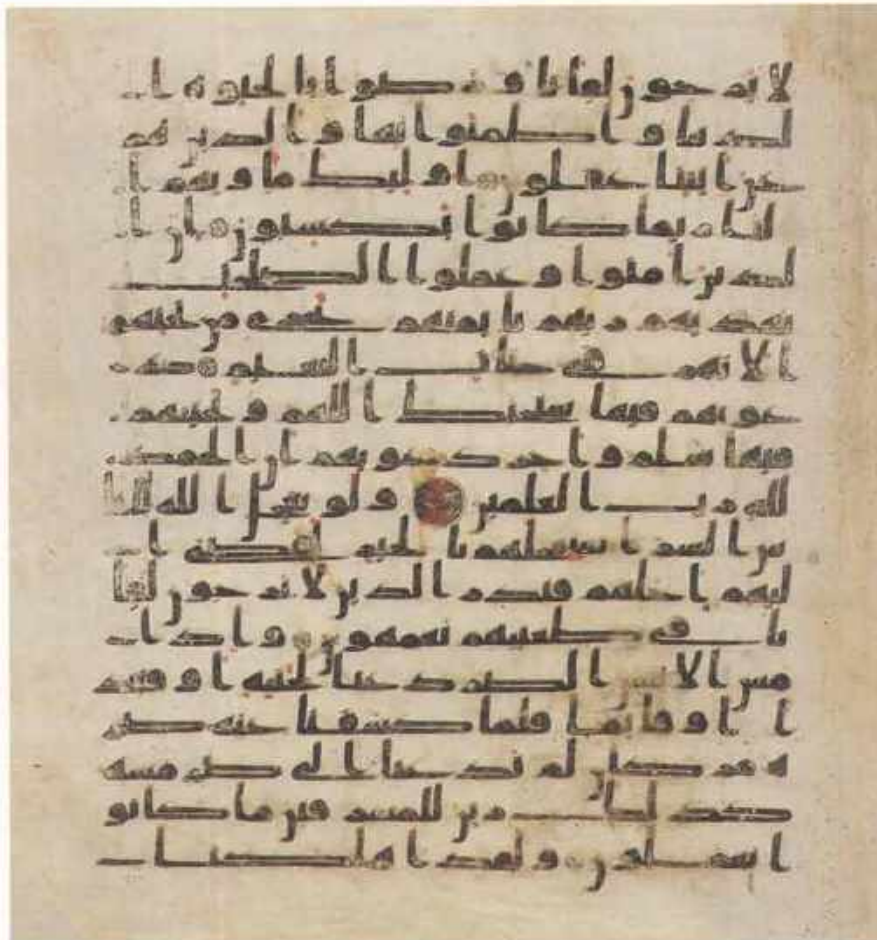 لا يرجون لقانا ورضوا بالحيوة ا
لدنيا واطمنوا بها والذين هم
عن ايتنا غفلون اوليك ماويهم ا
لنار بما كانوا يكسبون ان ا
لذين امنوا وعملوا الصلحت
يهديهم ربهم بايمنهم تجري من تحتهم
الانهر في جنات النعيم دعـ
ـويهم فيها سبحنك اللهم وتحيتهم
فيها سلم واخر دعويهم ان الحمد
لله رب العلمين ولو يعجل الله للنا
س الشر استعجلهم بالخير لقضي ا
ليهم اجلهم فنذر الذين لا يرجون لقا
نا في طغينهم يعمهون واذا
مس الانسن الضر دعنا لجنبه او قعد
ا او قايما فلما كشفنا عنه ضر
ه مر كان لم يدعنا الى ضر مسه
كذلك زين للمسرفين ما كانو
ا يعملون ولقد اهلكنا ا